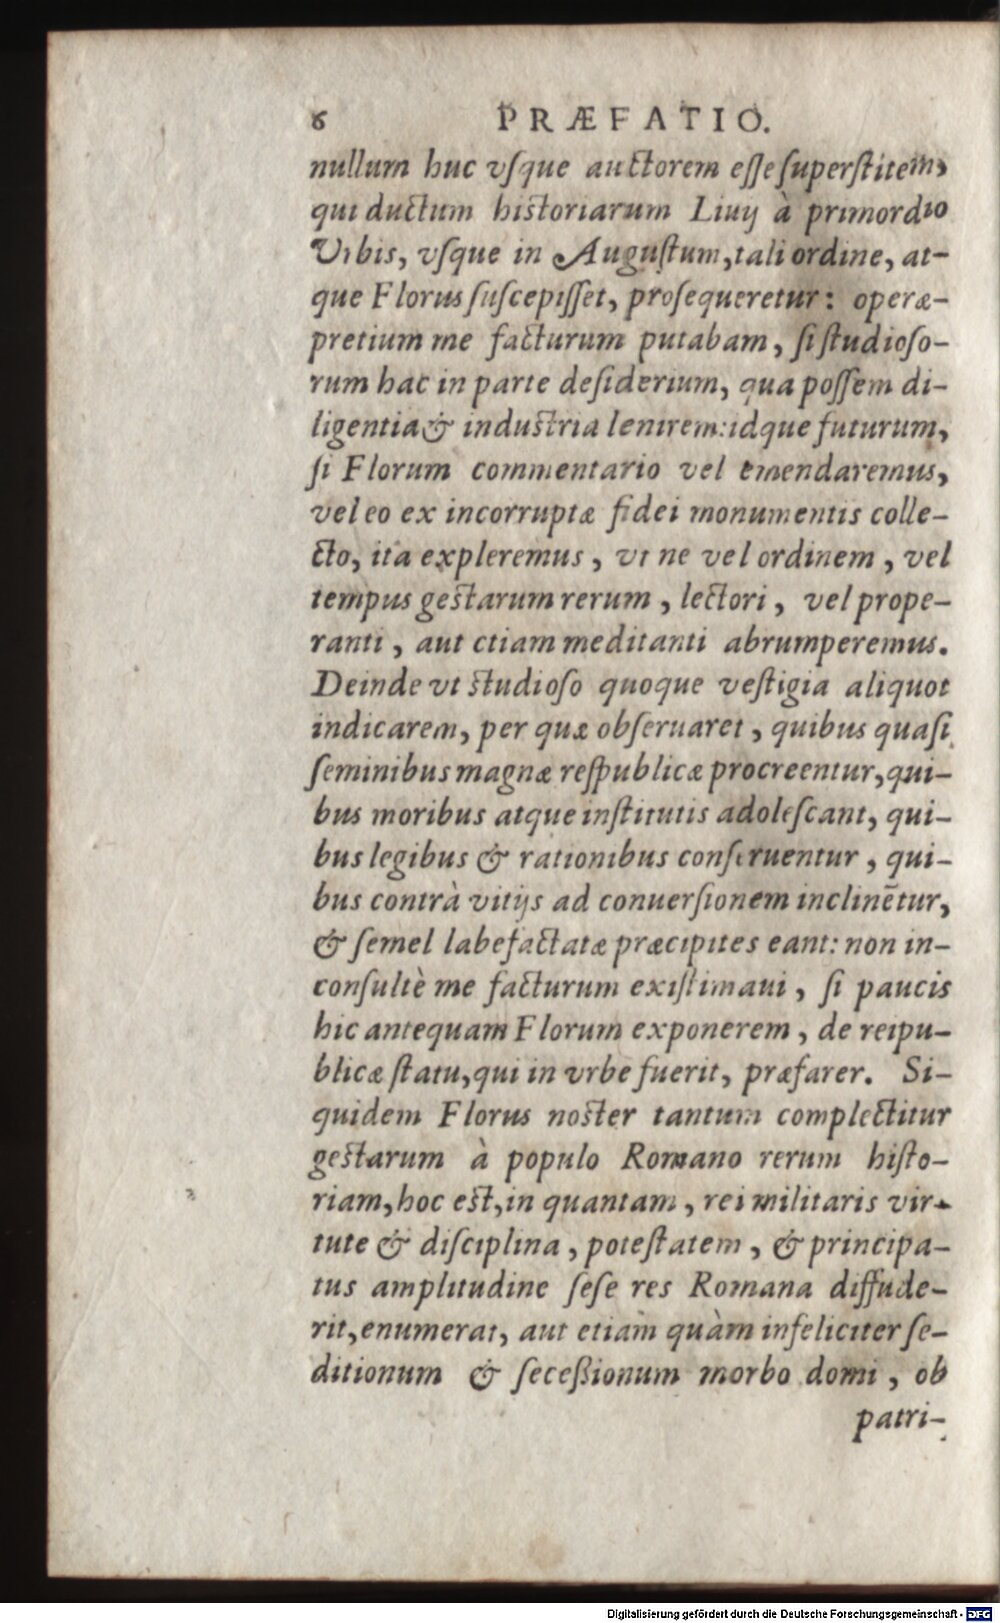 6 PRÆFATIO.
nullum huc vſque auctorem eſſe ſuperſtitem,
qui ductum historiarum Liuij à primordio
Vrbis, vſque in Auguſtum, tali ordine, at-
que Florus ſuſcepiſſet, proſequeretur: operæ-
pretium me facturum putabam, ſi ſtudioſo-
rum hac in parte deſiderium, qua poſſem di-
ligentia & industria lenirem: idque futurum,
ſi Florum commentario vel emendaremus,
vel eo ex incorruptæ fidei monumentis colle-
cto, ita expleremus, vt ne vel ordinem, vel
tempus gestarum rerum, lectori, vel prope-
ranti, aut etiam meditanti abrumperemus.
Deinde vt studioſo quoque veſtigia aliquot
indicarem, per quæ obſeruaret, quibus quaſi
ſeminibus magnæ reſpublicæ procreentur, qui-
bus moribus atque inſtitutis adoleſcant, qui-
bus legibus & rationibus conſeruentur, qui-
bus contrà vitijs ad conuerſionem inclinētur,
& ſemel labefactatæ præcipites eant: non in-
conſultè me facturum exiſtimaui, ſi paucis
hic antequam Florum exponerem, de reipu-
blicæ ſtatu, qui in vrbe fuerit, præfarer. Si-
quidem Florus noster tantum complectitur
gestarum à populo Romano rerum hiſto-
riam, hoc est, in quantam, rei militaris vir-
tute & diſciplina, poteſtatem, & principa-
tus amplitudine ſeſe res Romana diffude-
rit, enumerat, aut etiam quàm infeliciter ſe-
ditionum & ſeceßionum morbo domi, ob
patri-
Digitalisierung gefördert durch die Deutsche Forschungsgemeinschaft - DFG